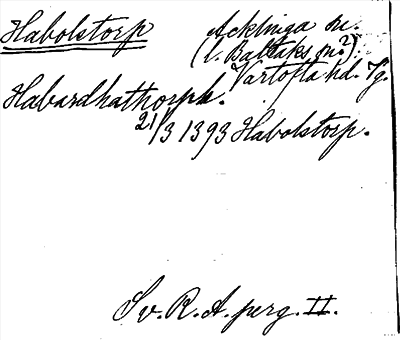 Habolstorp Acklinga sn.
(l. Baltaks sn.?)
Vartofta hd. Vg.
Habardhathorph.
21/3 1393 Habolstorp.
Sv. R. A. perg. II.